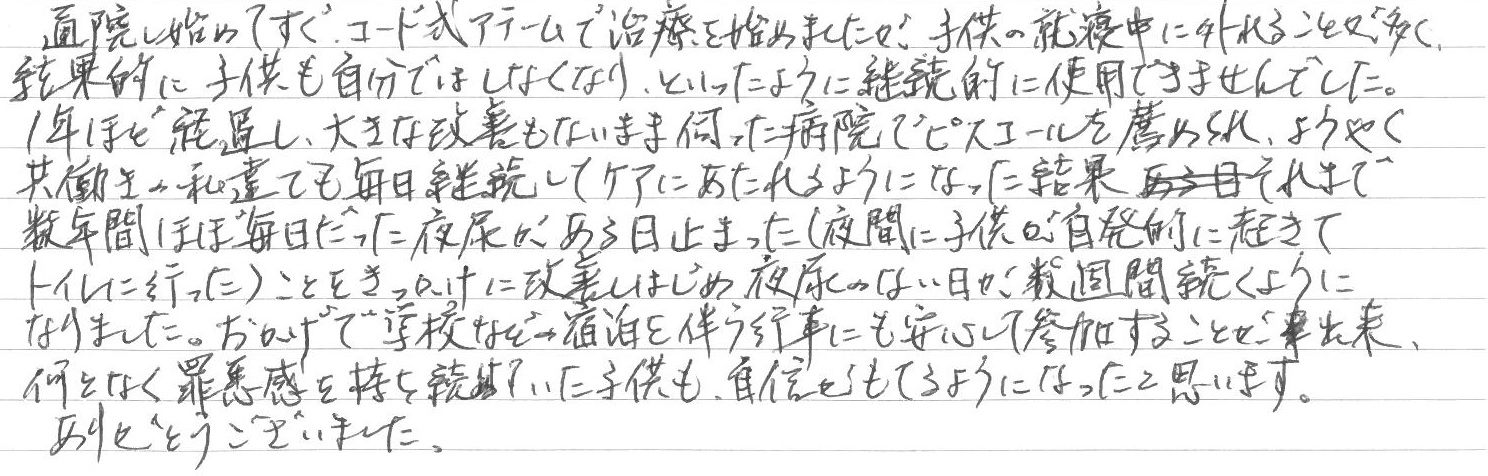 通院し始めてすぐ、コード式アラームで治療を始めましたが、子供の就寝中に外れることが多く、
結果的に子供も自分ではしなくなり、といったように継続的に使用できませんでした。
1年ほど経過し、大きな改善もないまま伺った病院でピスコールを薦められ、ようやく
共働きの私達でも毎日継続してケアにあたれるようになった結果 ある日それまで
数年間ほぼ毎日だった夜尿が、ある日止まった(夜間に子供が自発的に起きて
トイレに行った)ことをきっかけに改善しはじめ夜尿のない日が数週間続くように
なりました。おかげで学校などの宿泊を伴う行事にも安心して参加することが出来、
何となく罪悪感を持ち続けていた子供も、自信をもてるようになったと思います。
ありがとうございました。